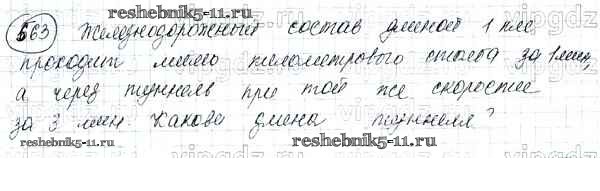 reshebnik5-11.ru
563 Железнодорожный состав длиной 1 км
проходит мимо километрового столба за 1 мин,
а через туннель при той же скорости
за 3 мин. Какова длина туннеля?
reshebnik5-11.ru reshebnik5-11.ru